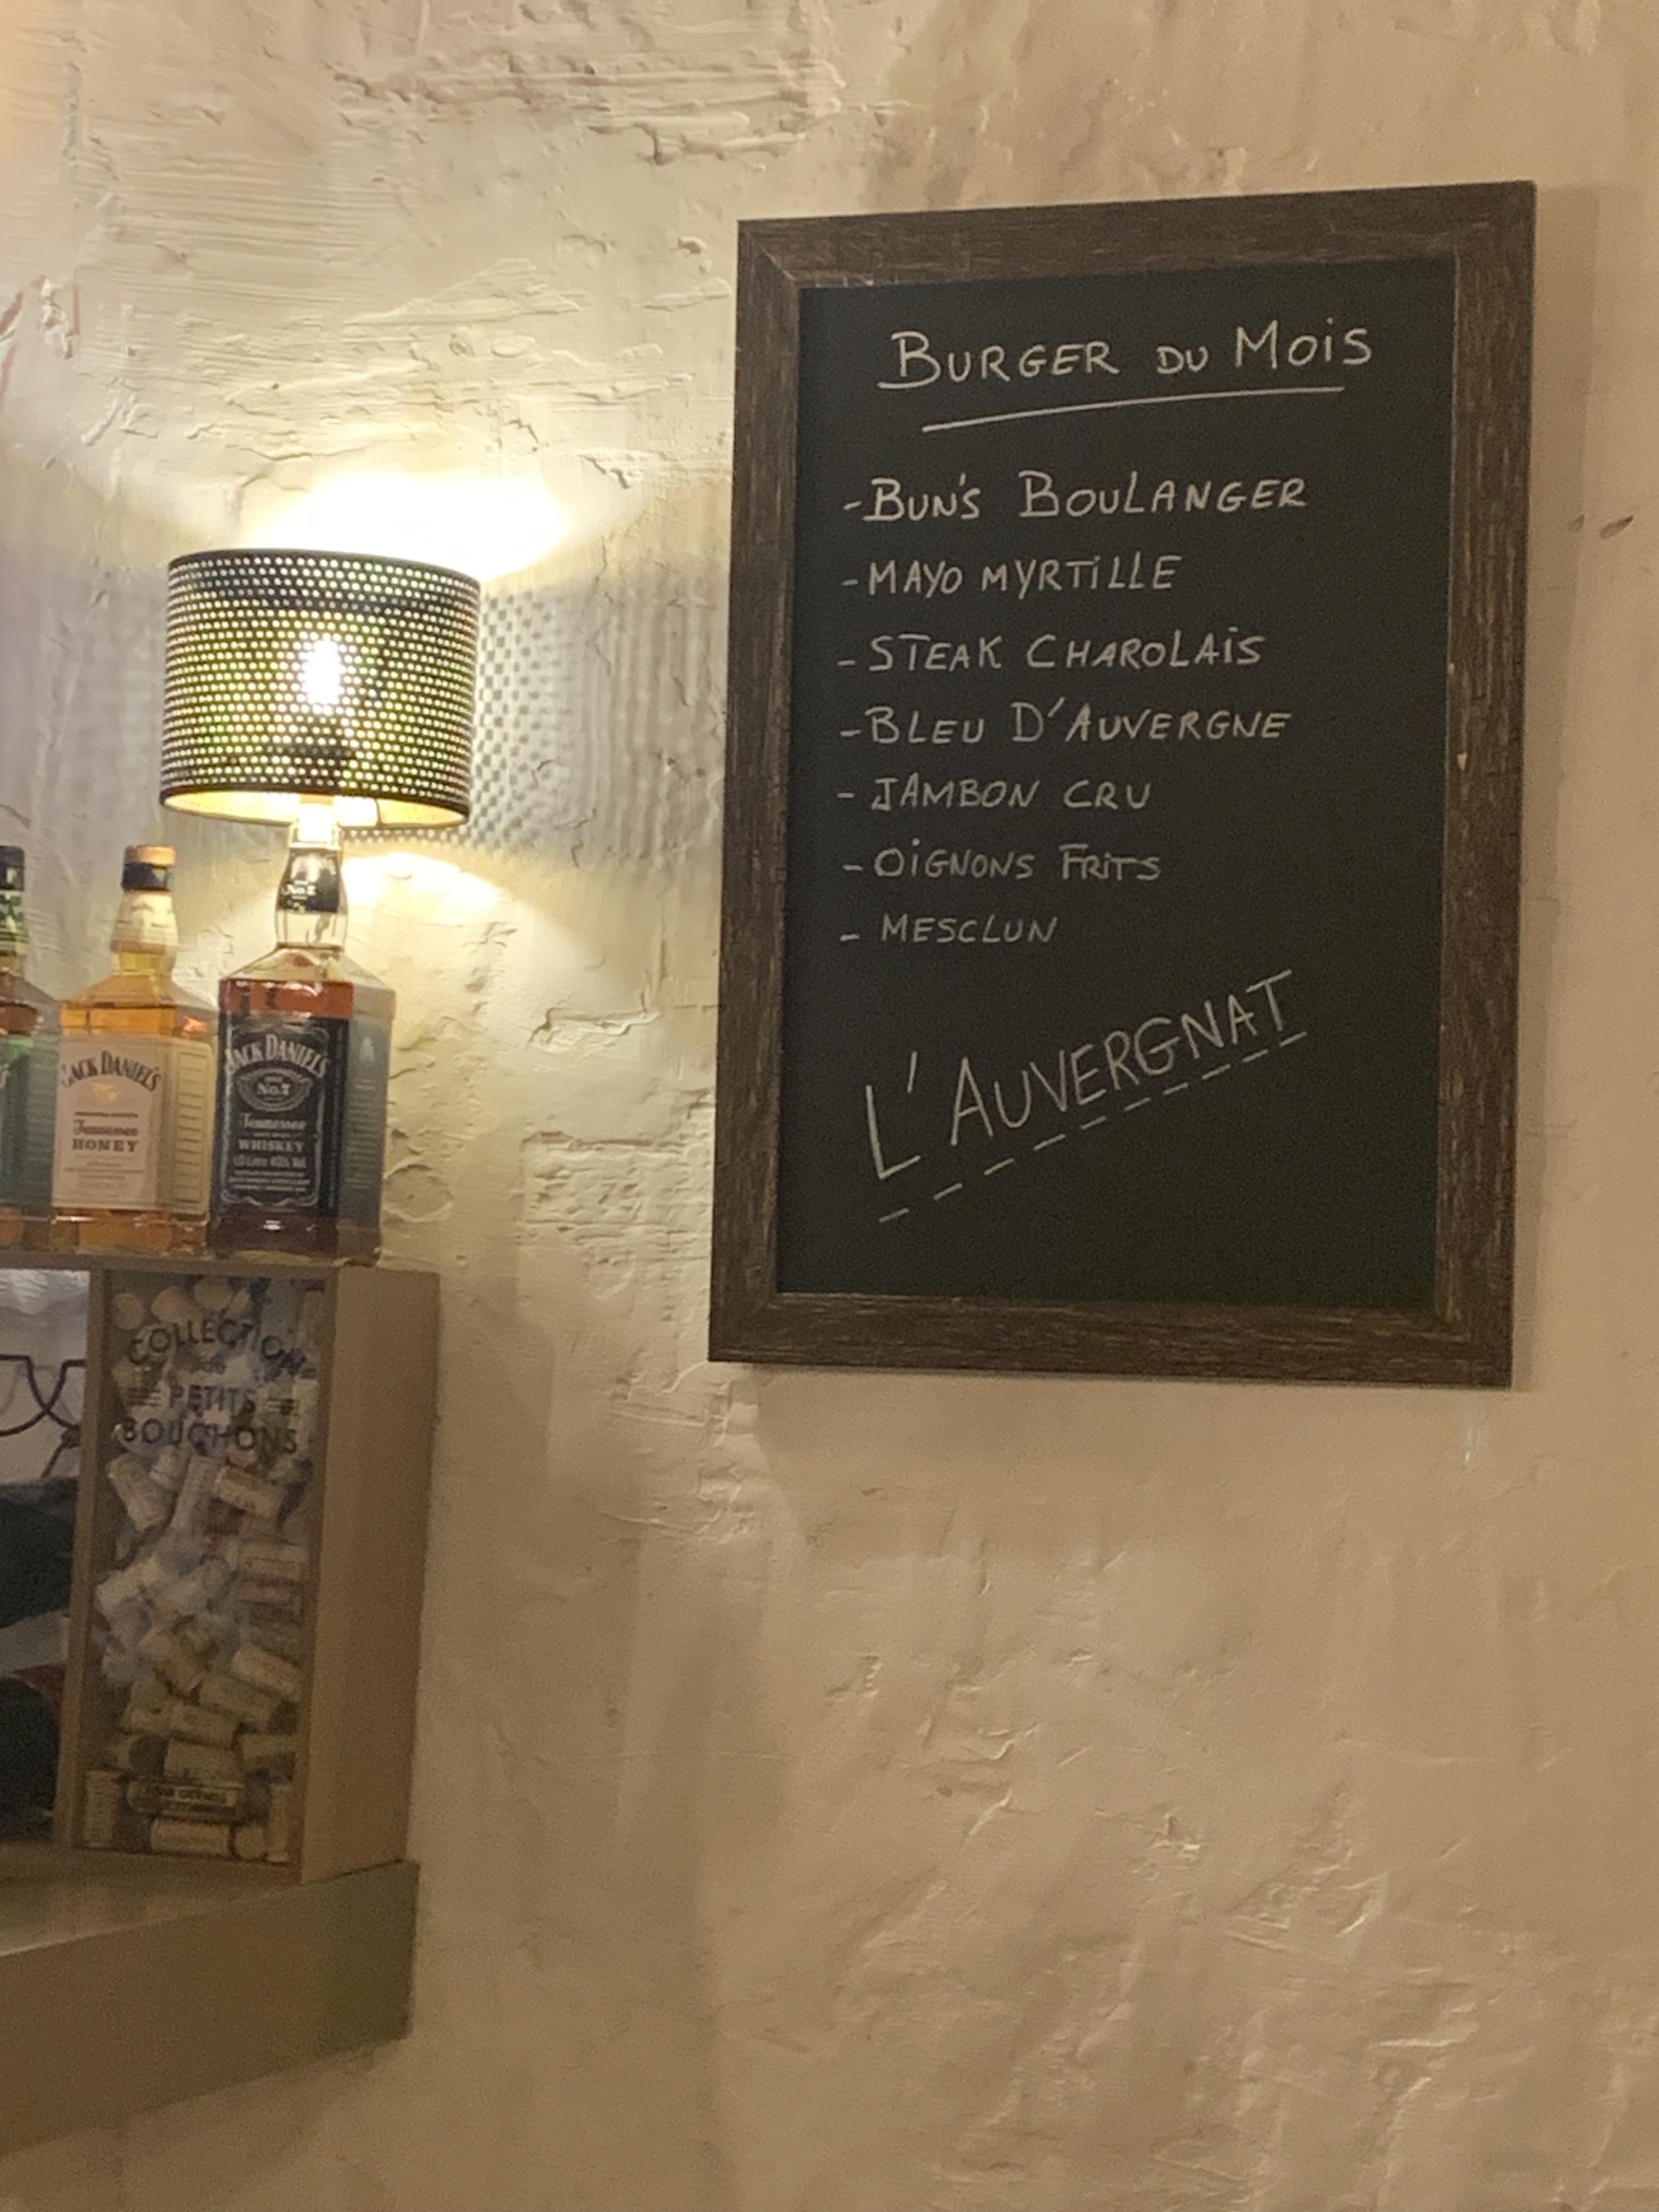 BURGER DU MOIS
-BUN'S BOULANGER
-MAYO MYRTILLE
- STEAK CHAROLAIS
-BLEU D'AUVERGNE
- JAMBON CRU
- OIGNONS FRITS
- MESCLUN
L'AUVERGNAT
No.7
JACK DANIEL'S
Tennessee
HONEY
JACK DANIEL'S
No.7
Tennessee
WHISKEY
COLLECTION
PETITS
BOUCHONS